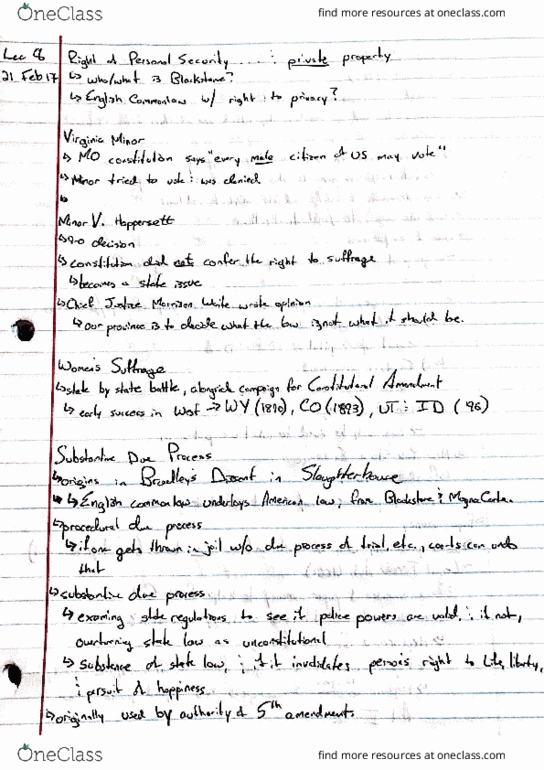 OneClass
find more resources at oneclass.com
Lec 8
21 Feb 17
Right of Personal Security .... : private property
↳ who/what is Blackstone?
↳ English Commonlaw w/ right : to privacy?
Virginia Minor
↳ MO constitution says "every male citizen of US may vote"
↳ Minor tried to vote : was denied
↳
Minor V. Happersett
↳ 9-0 decision
↳ constitution did not confer the right to suffrage
↳ becomes a state issue
↳ Chief Justice Morrison Waite wrote opinion
↳ our province is to decide what the law is, not what it should be.
Women's Suffrage
↳ state by state battle, alongside campaign for Constitutional Amendment
↳ early success in West → WY (1890), CO (1893), UT : ID ('96)
Substantive Due Process
↳ origins in Bradley's Dissent in Slaughterhouse
↳ English commonlaw underlays American law, from Blackstone : Magna Carta.
↳ procedural due process
↳ if one gets thrown in jail w/o due process of trial, etc., courts can undo
that
↳ substantive due process
↳ examing state regulations to see if police powers are valid, : if not,
overturning state law as unconstitutional
↳ substance of state law, : if it invalidates persons right to life, liberty,
: persuit of happiness
↳ originally used by authority of 5th amendment.
OneClass
find more resources at oneclass.com